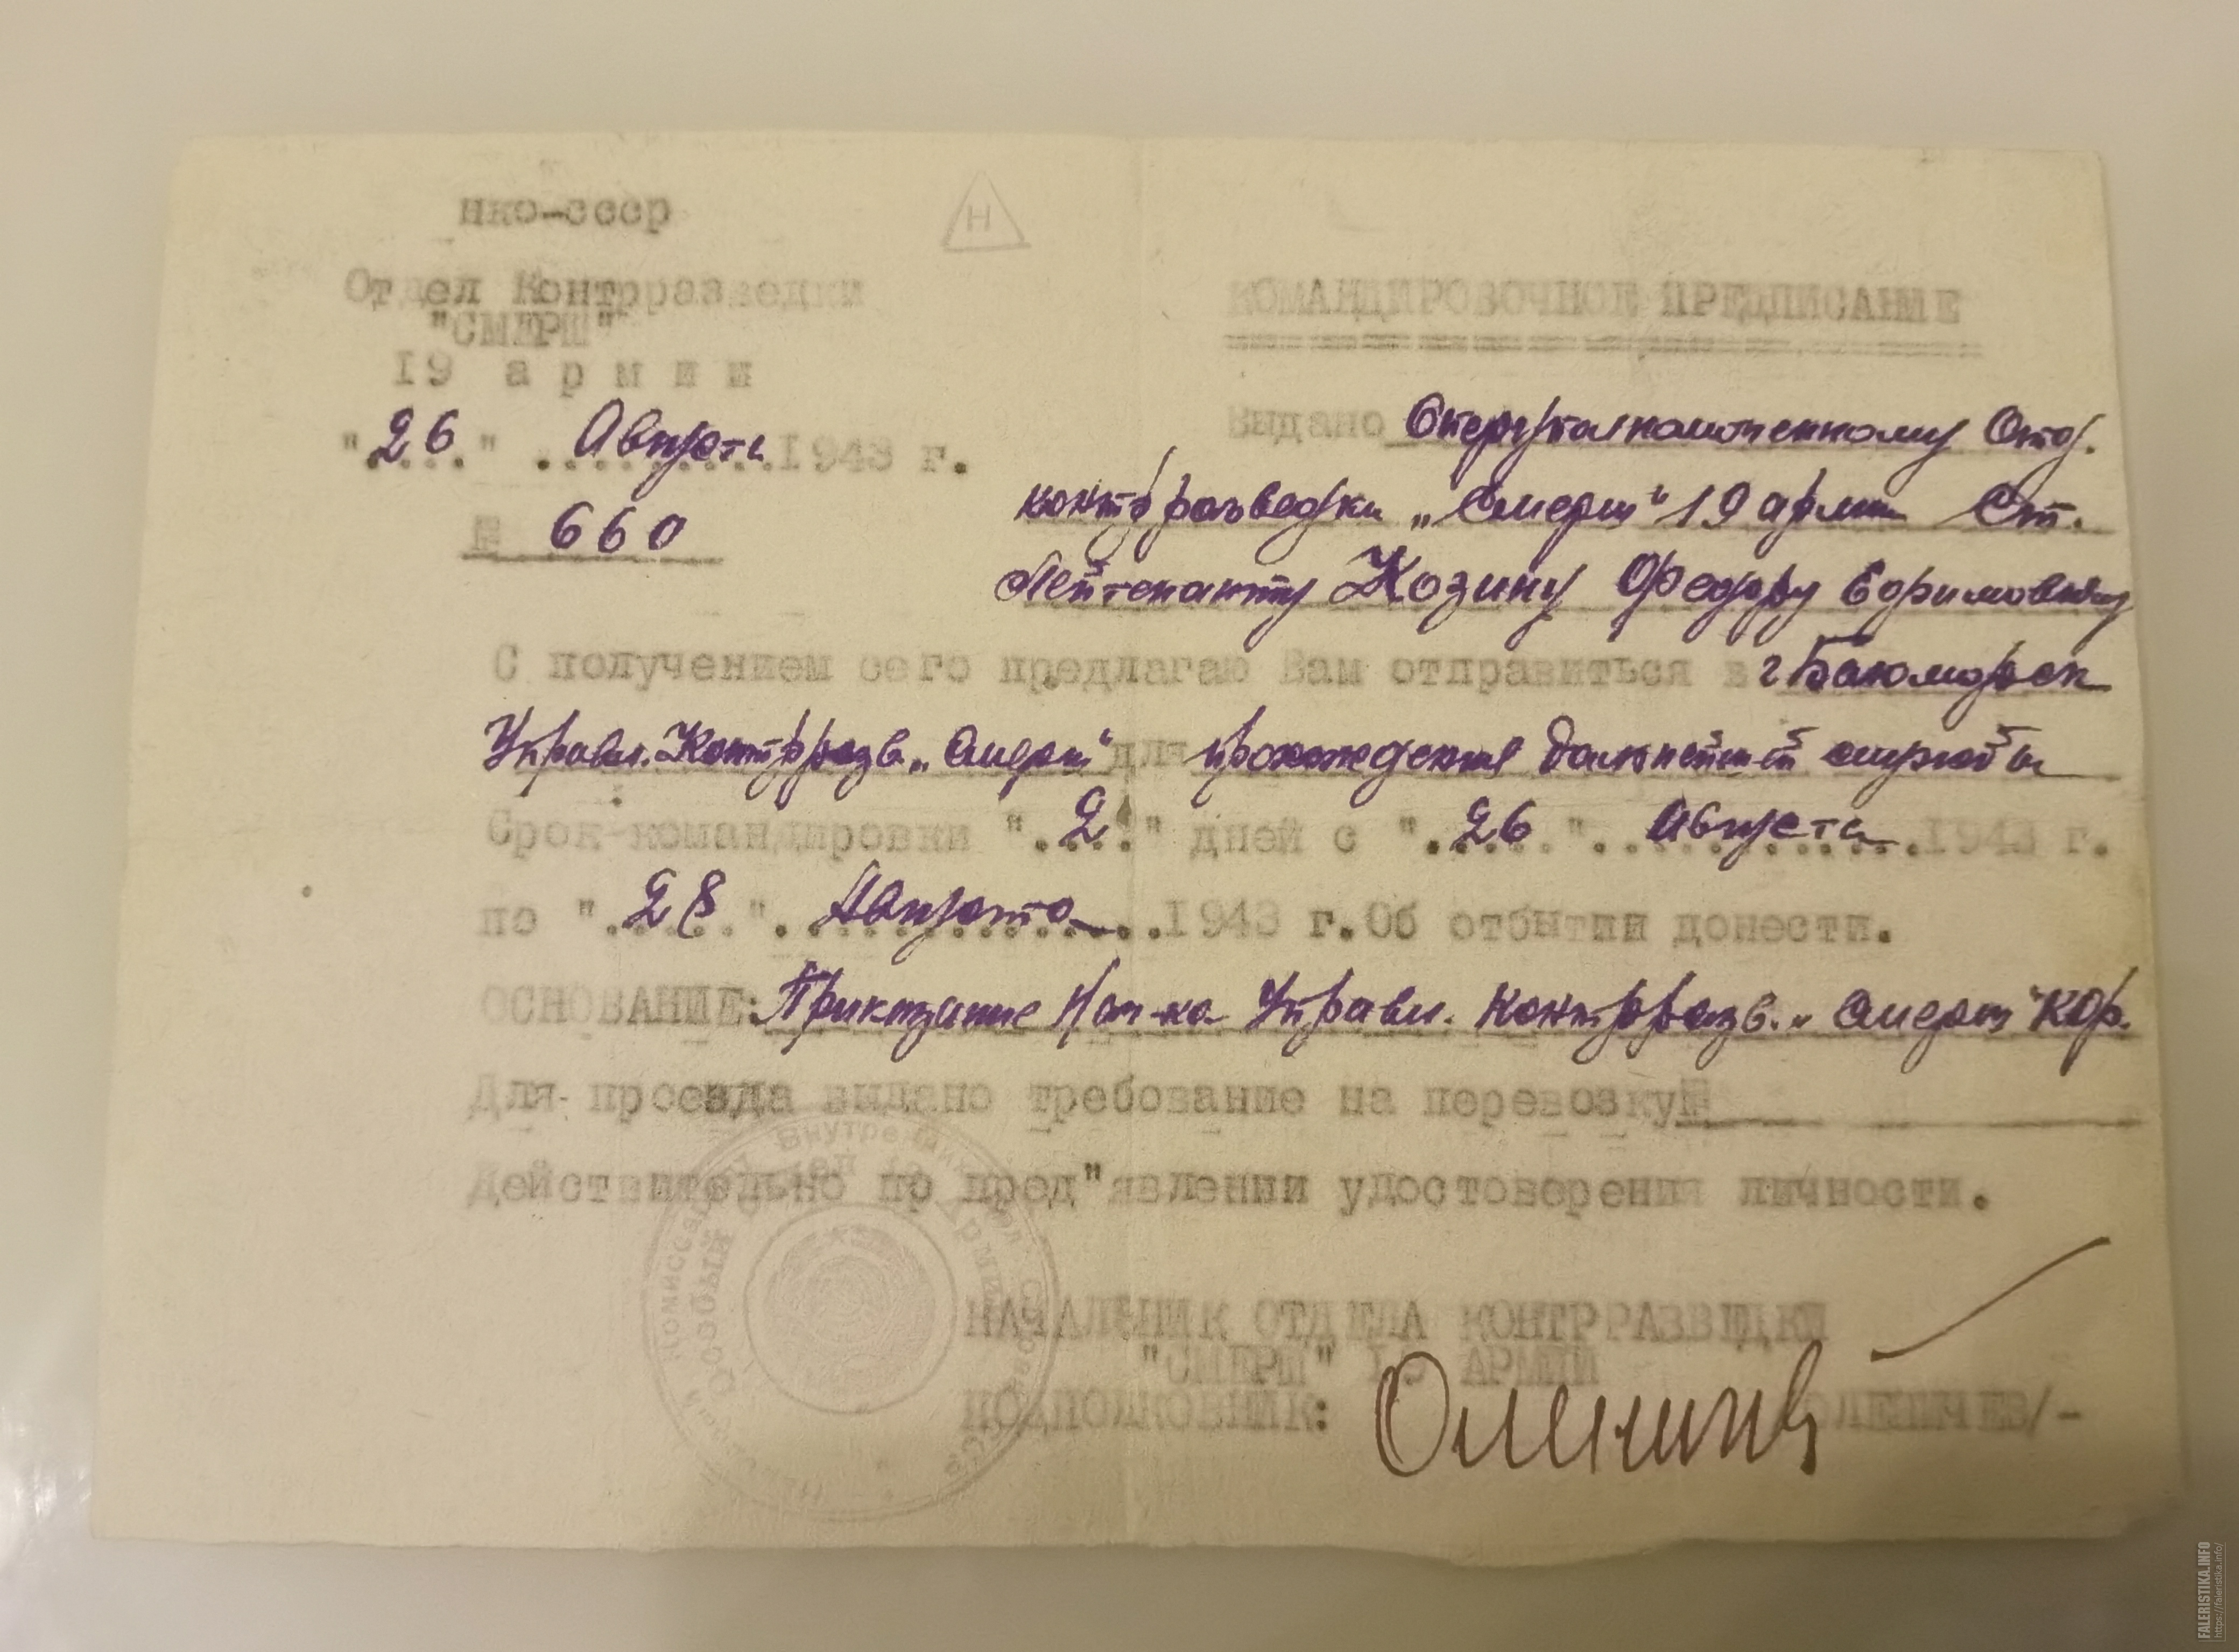 НКО-СССР
Н
Отдел Контрразведки
"СМЕРШ"
19 армии
"26" Августа 1943 г.
№ 660
КОМАНДИРОВОЧНОЕ ПРЕДПИСАНИЕ
Выдано Оперуполномоченному Отд.
контрразведки „Смерш" 19 армии Ст.
Лейтенанту Козину Федору Ефимовичу
С получением сего предлагаю Вам отправиться в г Беломорск
Управл. Контрразв. „Смерш" для прохождения дальнейшей службы
Срок командировки "2" дней с "26" Августа 1943 г.
по "28" Августа 1943 г. Об отбытии донести.
ОСНОВАНИЕ: Приказание Нач-ка Управл. Контрразв. „Смерш" КФр.
Для проезда выдано требование на перевозку №
Действительно по пред"явлении удостоверения личности.
НАЧАЛЬНИК ОТДЕЛА КОНТРРАЗВЕДКИ
"СМЕРШ" 19 АРМИИ
ПОДПОЛКОВНИК: ОЛЕНИЧЕВ/-
Народный Комиссариат Внутренних Дел Союза ССР
Особый Отдел 19 Армии
FALERISTIKA.INFO
https://faleristika.info/